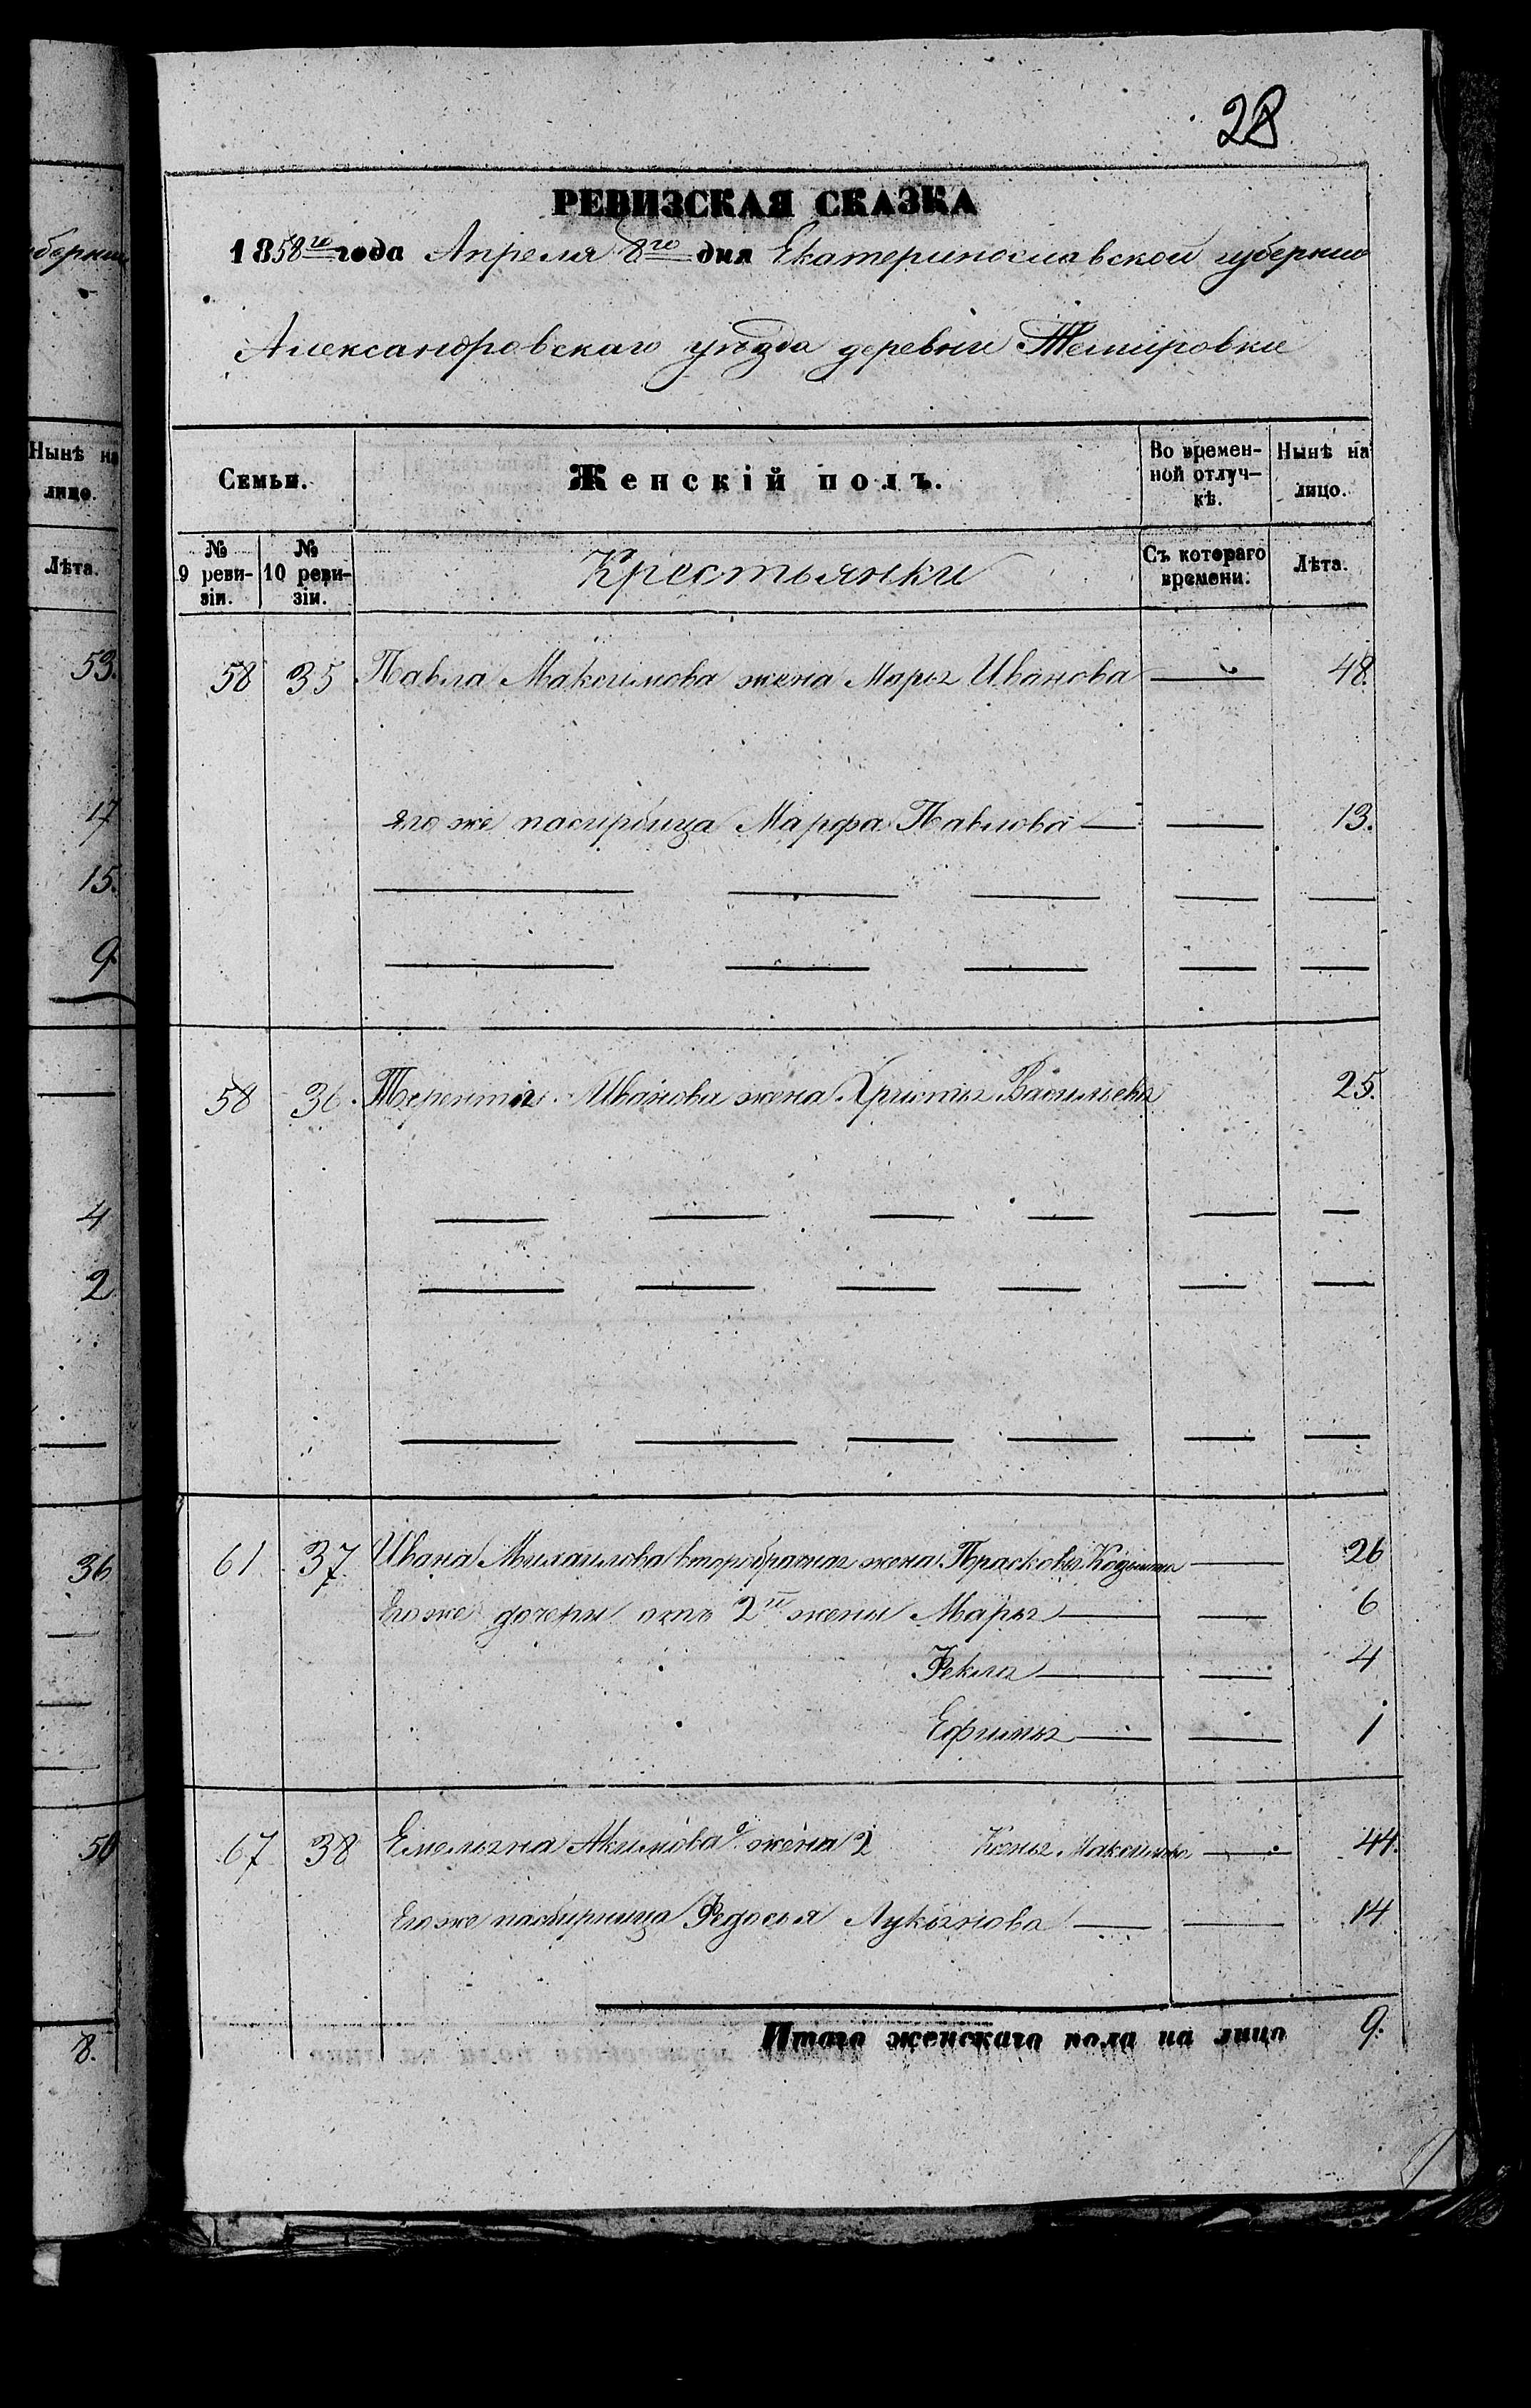 28
берніи
Нынѣ на
лицо.
Лѣта.
53.
17
15.
9
4
2
36
50
8.
РЕВИЗСКАЯ СКАЗКА
1858го года Апреля 8го дня Екатеринославской губерніи
Александровскаго уѣзда деревни Темировки
Семьи. Женскій полъ. Во времен- Нынѣ на
ной отлуч- лицо.
кѣ.
№ № Крестьянки Съ котораго Лѣта.
9 реви- 10 реви- времени.
зіи. зіи.
58 35 Павла Максимова жена Марья Иванова — 48.
Его же пасирбица Марфа Павлова — — 13.
58 36. Терентія Иванова жена Христья Васильева 25.
61. 37. Ивана Михаилова второбрачная жена Прасковья — 26
Его же дочери отъ 2й жены Марья — — 6
Фекла — — 4
Ефимья — — 1
67 38 Емельяна Акимова жена 2 Ксенья Максимова — 44.
Его же пасирница Федосья Лукьянова — — 14
Итого женскаго пола на лицо 9.